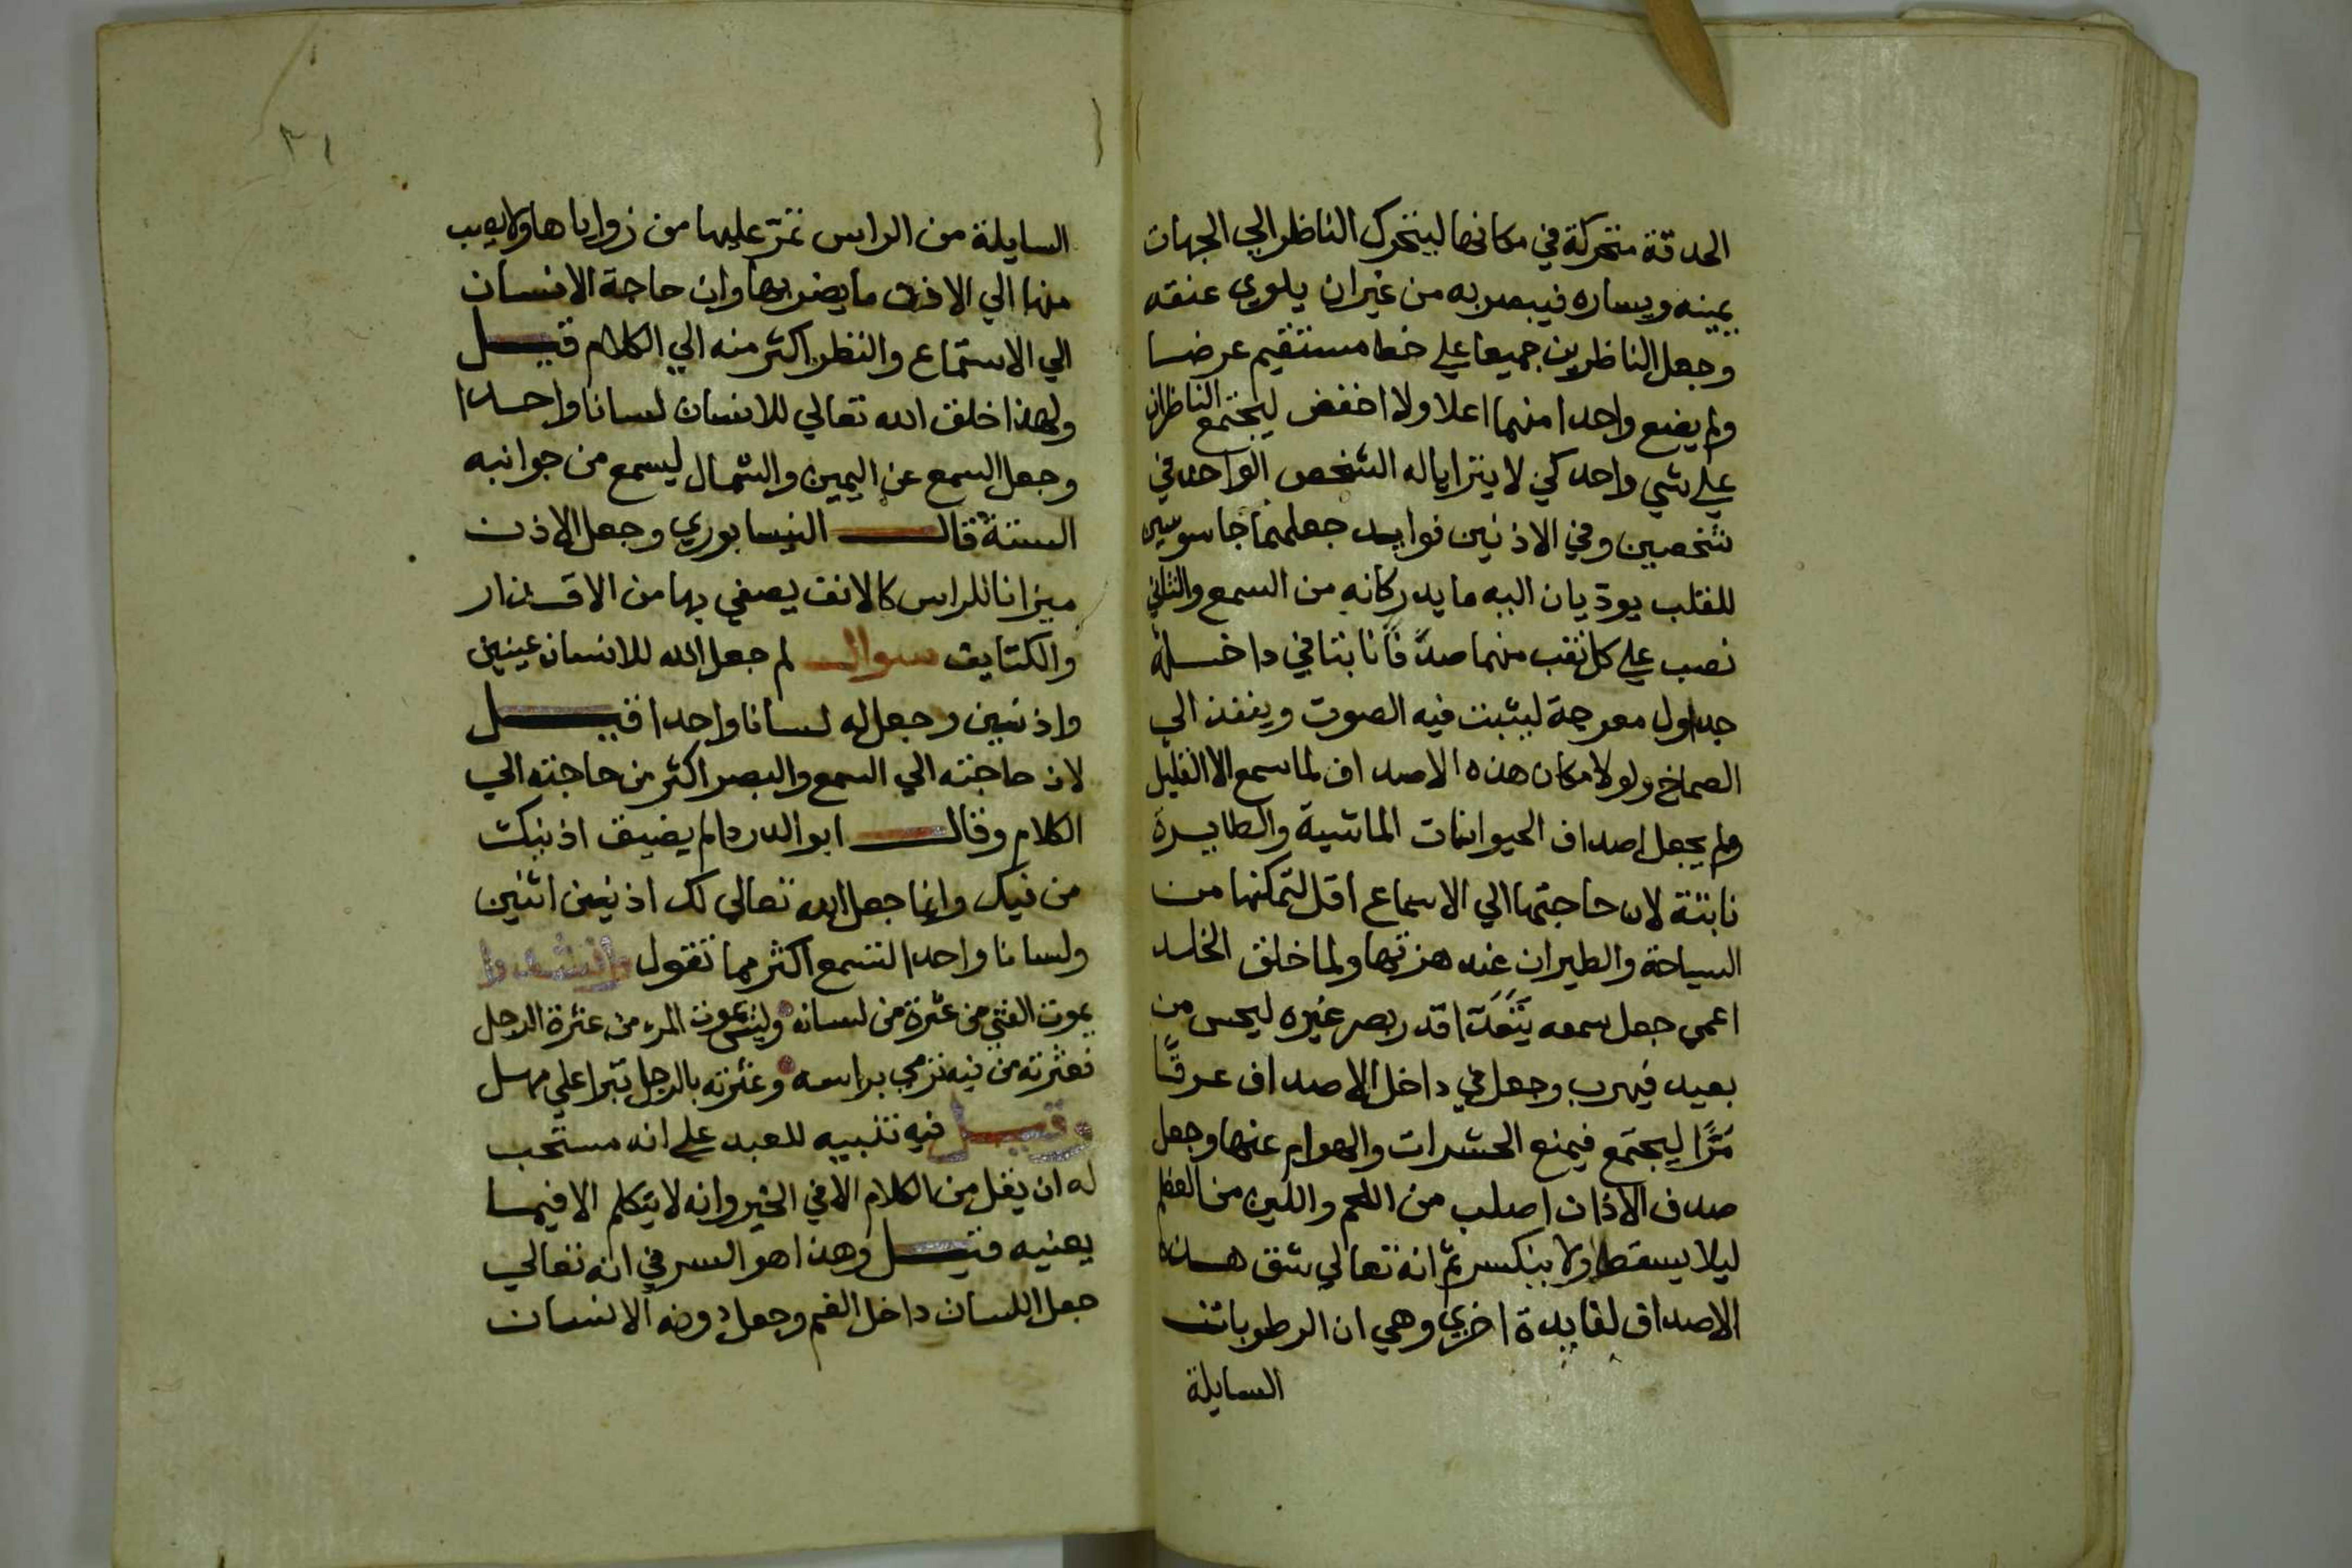 الحدقة متحركة في مكانها ليتحرك الناظر الي الجهات
يمينه ويساره فيبصر به من غير ان يلوي عنقه
وجعل الناظرين جميعا علي خط مستقيم عرضا
ولم يضع واحدا منهما اعلا ولا اخفض ليجتمع الناظران
علي شي واحد كي لا يترايا له الشخص الواحد في
شخصين وفي الاذنين فوايد جعلهما جاسوسين
للقلب يوديان اليه ما يدركانه من السمع والثاني
نصب علي كل ثقب منهما صدفا نابتا في داخله
جداول معوجة ليثبت فيه الصوت وينفذ الي
الصماخ ولولا مكان هذه الاصداف لما سمع الا القليل
ولم يجعل اصداف الحيوانات الماشية والطايرة
نابتة لان حاجتها الي الاسماع اقل لتمكنها من
السياحة والطيران عند هزتها ولما خلق الخلد
اعمي جعل سمعه اقدر بصر غيره ليحس من
بعيد فيهرب وجعل في داخل الاصداف عرقا
مرا ليجتمع فيمنع الحشرات والهوام عنها وجعل
صدف الاذان اصلب من اللحم والين من العظم
ليلا يسقط ولا ينكسر ثم انه تعالي شق هذه
الاصداف لفايدة اخري وهي ان الرطوبات
السايلة
٣١
السايلة من الراس تمر عليها من زواياها ولا يصب
منها الي الاذن ما يضر بها وان حاجة الانسان
الي الاستماع والنظر اكثر منه الي الكلام قيل
ولهذا خلق الله تعالي للانسان لسانا واحدا
وجعل السمع عن اليمين والشمال ليسمع من جوانبه
الستة قال النيسابوري وجعل الاذن
ميزانا للراس كالانف يصفي بها من الاقذار
والكتايف سوال لم جعل الله للانسان عينين
واذنين وجعل له لسانا واحدا قيل
لان حاجته الي السمع والبصر اكثر من حاجته الي
الكلام وقال ابو الدردا لم يضيق اذنيك
من فيك وانما جعل الله تعالي لك اذنين اثنين
ولسانا واحدا لتسمع اكثر مما تقول وانشدوا
يموت الفتي من عثرة من لسانه وليس يموت المرء من عثرة الرجل
فعثرته من فيه ترمي براسه وعثرته بالرجل تبرا علي مهل
وقيل فيه تنبيه للعبد علي انه مستحب
له ان يقل من الكلام الا في الخير وانه لا يتكلم الا فيما
يعنيه قيل وهذا هو السر في انه تعالي
جعل اللسان داخل الفم وجعل دونه الاسنان